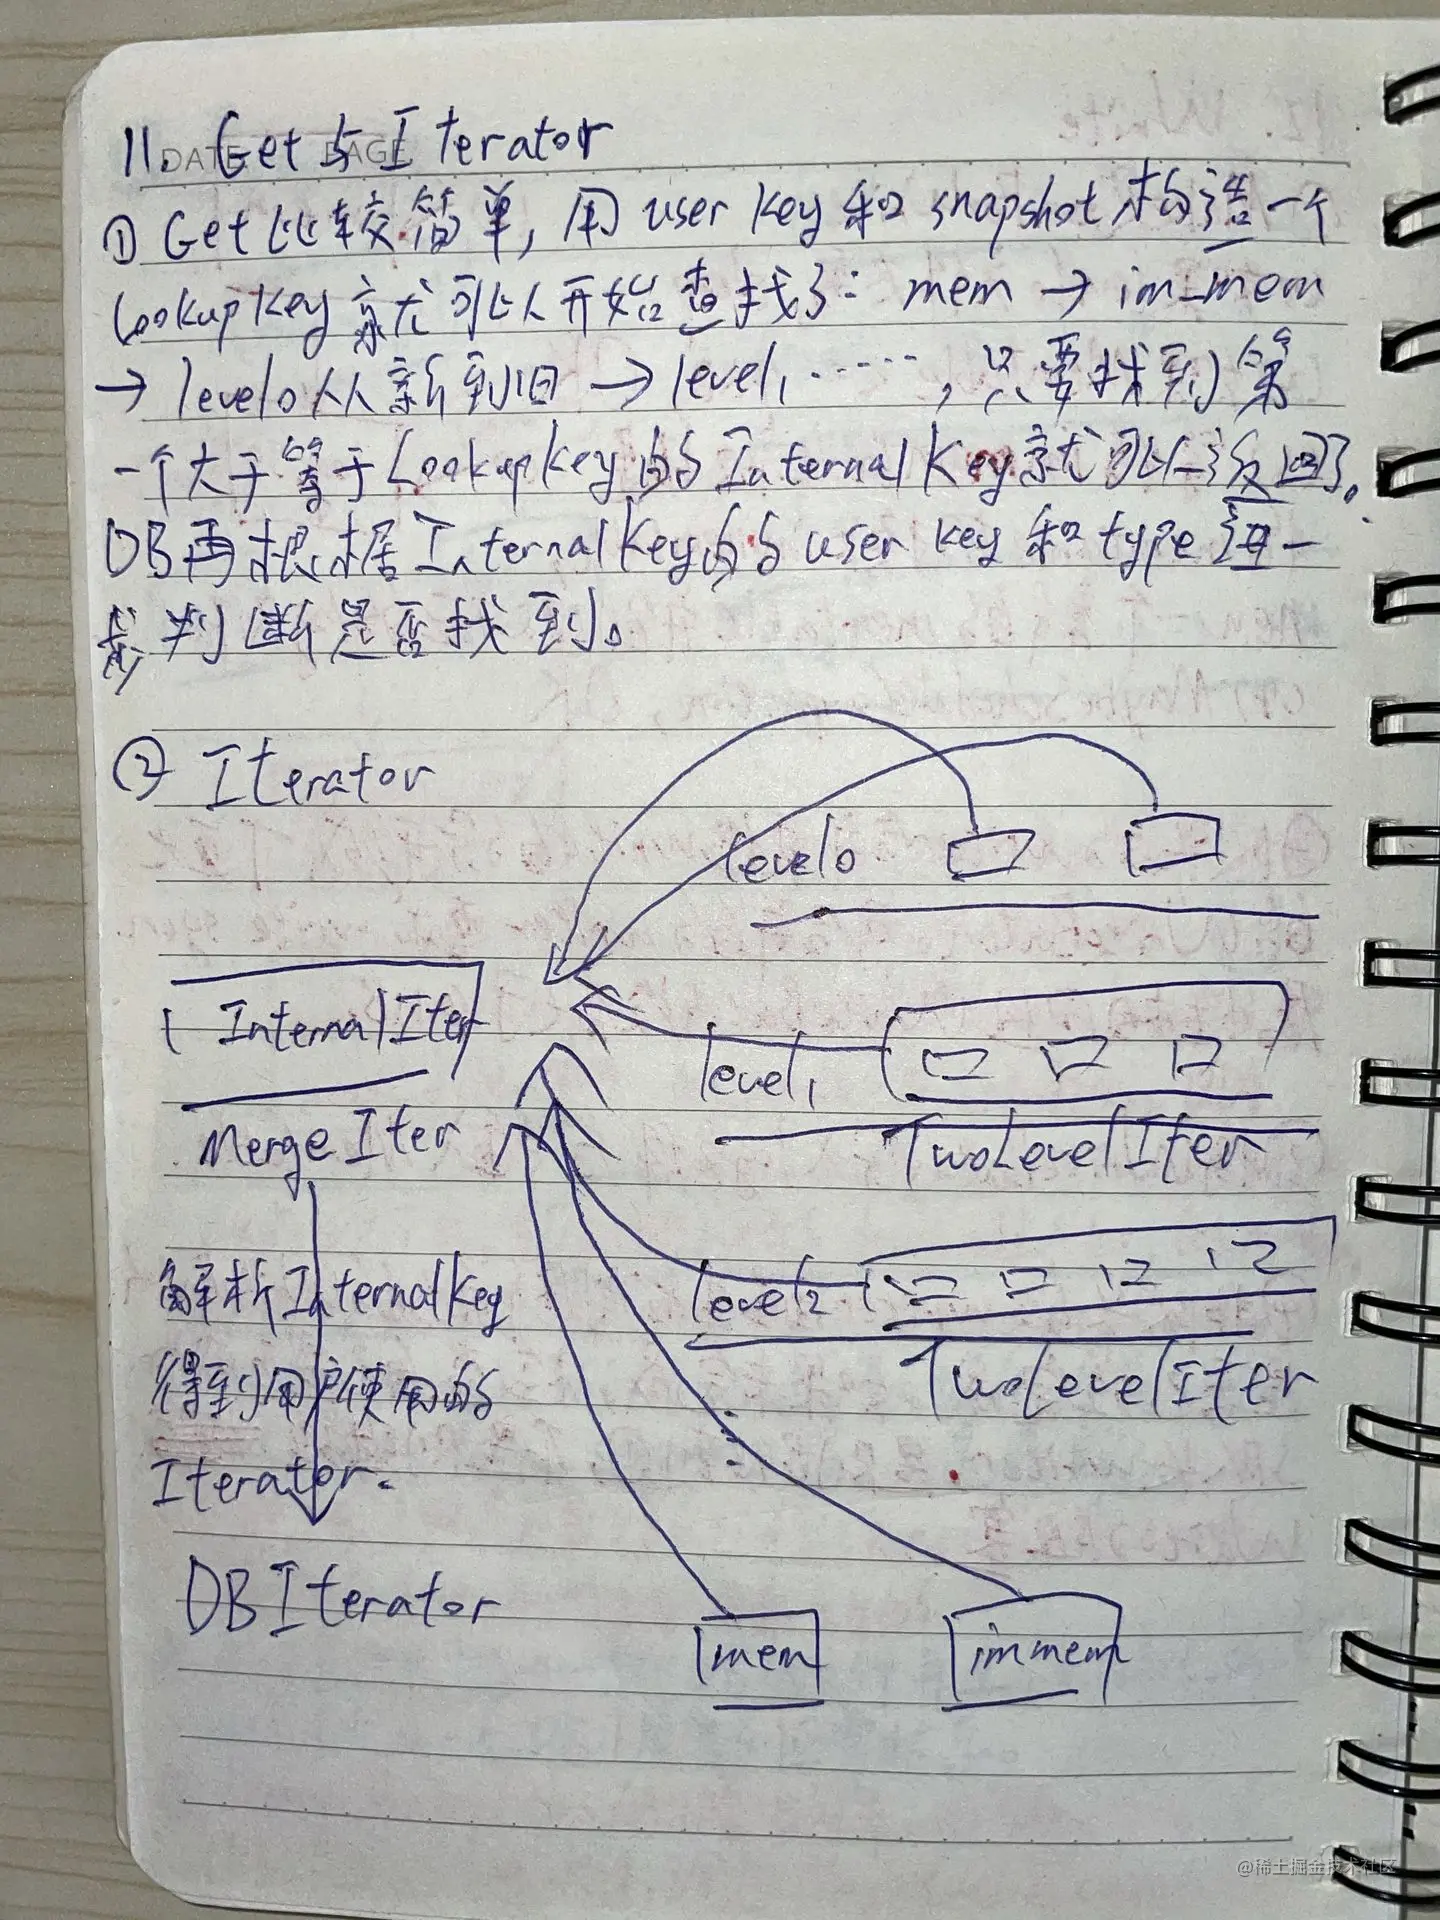 11. Get与Iterator
① Get比较简单,用user key和snapshot构造一个
Lookupkey就可以开始查找了: mem → im_mem
→ level0从新到旧 → level1 ······,只要找到第
一个大于等于Lookupkey的InternalKey就可以返回了。
DB再根据InternalKey的user key和type进一
步判断是否找到。
② Iterator
level0
InternalIter
level1
MergeIter
TwoLevelIter
解析InternalKey
level2
得到用户使用的
TwoLevelIter
Iterator.
DBIterator
mem
immem
DATE PAGE
@稀土掘金技术社区